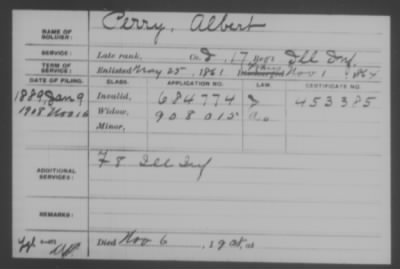 NAME OF SOLDIER: Perry, Albert
SERVICE: Late rank, Co. I, 17 Reg't Ill Inf.
TERM OF SERVICE: Enlisted May 25, 1861 Discharged Nov 1, 1864
DATE OF FILING. CLASS. APPLICATION NO. LAW. CERTIFICATE NO.
1889, Jan 9 Invalid, 684774 453385
1908 Nov 16 Widow, 908015
Minor,
ADDITIONAL SERVICES: F 8 Ill Inf
REMARKS:
Died Nov 6, 1908, at